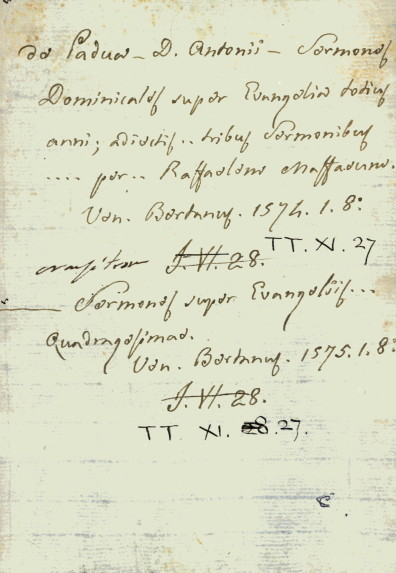 de Padua - D. Antonii - Sermones
Dominicales super Evangelia totius
anni; adiectis.. tribus Sermonibus
.... per.. Raffaelem Maffaeum.
Ven. Bertanus. 1574. 1. 8:
TT. XI. 27
J. VI. 28.
Sermones super Evangeliis...
Quadragesimae.
Ven. Bertanus. 1575. 1. 8:
J. VI. 28.
TT XI. 28. 27.